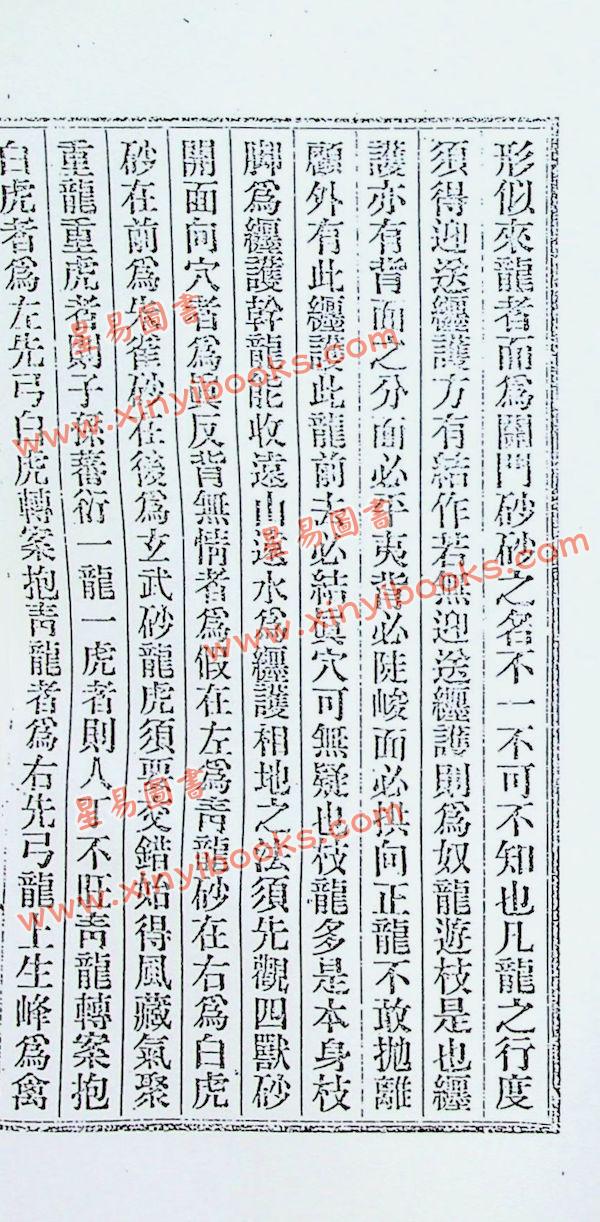 形似來龍者面爲關門砂砂之名不一不可不知也凡龍之行度
須得迎送纒護方有結作若無迎送纒護則爲奴龍遊枝是也纒
護亦有背面之分面必平夷背必陡峻面必拱向正龍不敢抛離
顧外有此纒護此龍前去必結眞穴可無疑也枝龍多是本身枝
脚爲纒護幹龍能收遠山遠水爲纒護相地之法須先觀四獸砂
開面向穴者爲眞反背無情者爲假在左爲靑龍砂在右爲白虎
砂在前爲朱雀砂在後爲玄武砂龍虎須要交錯始得風藏氣聚
重龍重虎者則子孫蕃衍一龍一虎者則人丁不旺靑龍轉案抱
白虎者爲左先弓白虎轉案抱靑龍者爲右先弓龍上生峰爲禽
星易圖書
www.xinyibooks.com
星易圖書
www.xinyibooks.com
星易圖書
www.xinyibooks.com